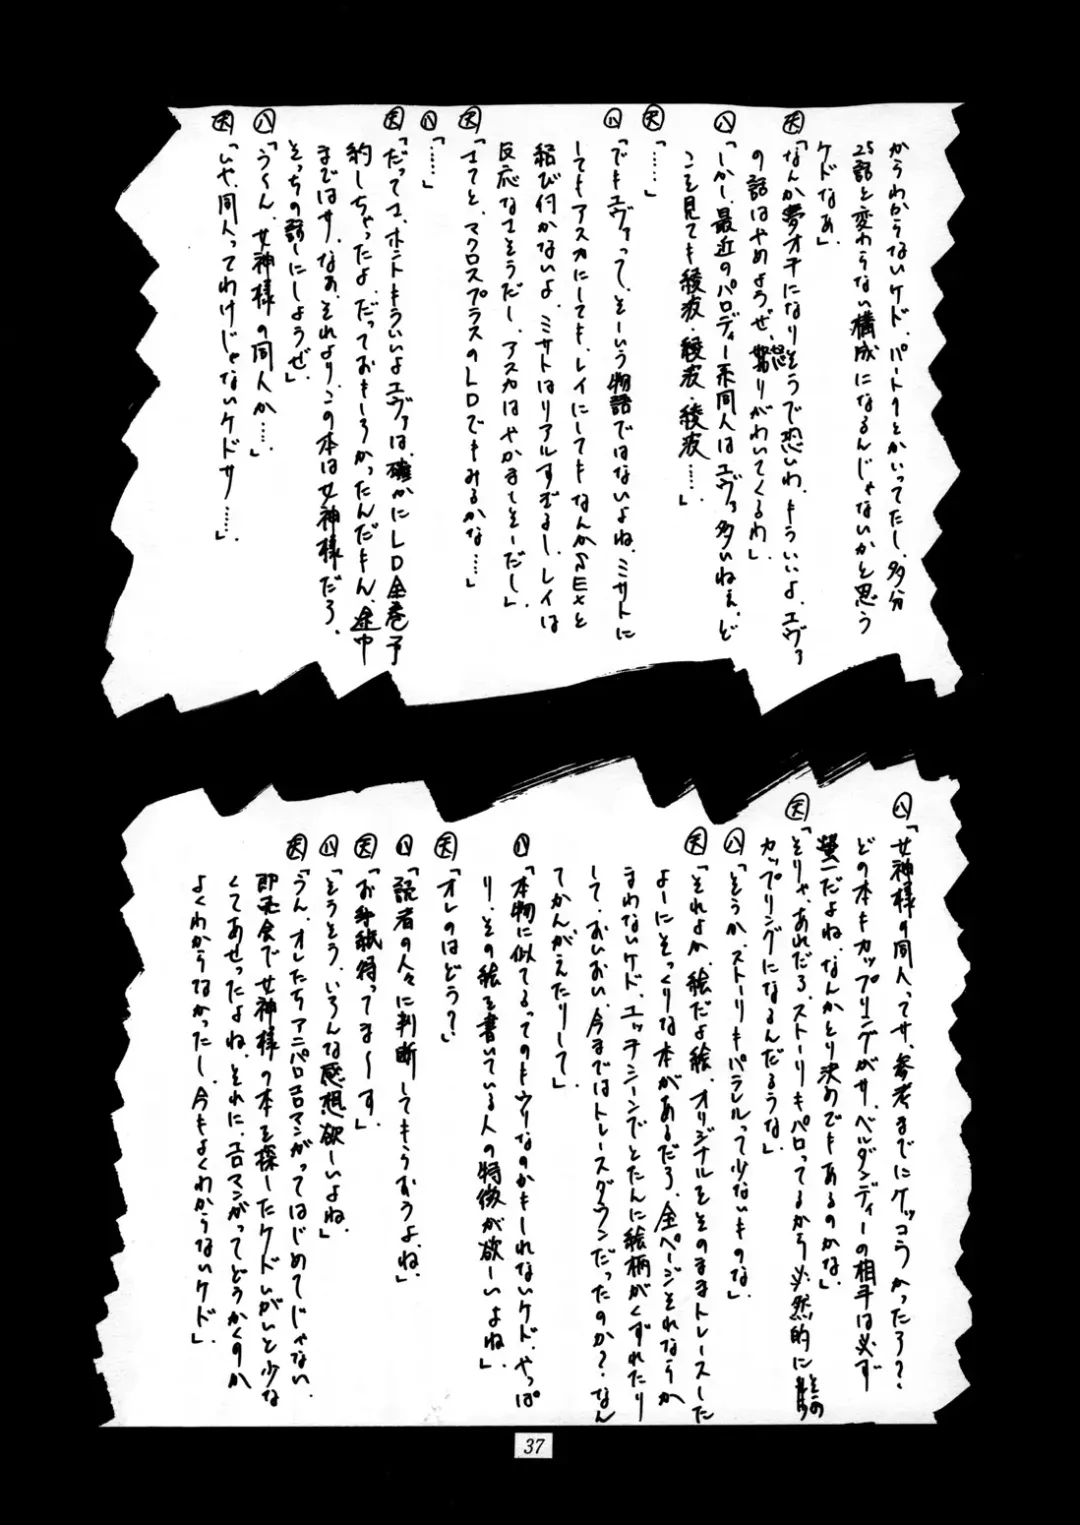 からわからないケド、パート2とかいってたし、多分
25話と変わらない構成になるんじゃないかと思う
ケドなぁ」
天「なんか夢オチになりそうで恐いわ、もういいよ、エヴァ
の話はやめようぜ、怒りがわいてくるわ」
八「しかし、最近のパロディー系同人はエヴァ多いねぇ、ど
こを見ても綾波・綾波・綾波……」
天「……」
八「でもエヴァって、そーいう物語ではないよね、ミサトに
してもアスカにしても、レイにしてもなんかSEXと
結び付かないよ、ミサトはリアルすぎるし、レイは
反応なさそうだし、アスカはやかましそーだし」
天「さてと、マクロスプラスのLDでもみるかな……」
八「……」
天「だってさ、ホントもういいよエヴァは、確かにLD全巻予
約しちゃったよ、だっておもしろかったんだもん、途中
まではサ、なぁ、それより、この本は女神様だろ、
そっちの話しにしようぜ」
八「う〜ん、女神様の同人か……」
天「いや、同人ってわけじゃないケドサ……」
八「女神様の同人ってサ、参考までにケッコうかったろ?
どの本もカップリングがサ、ベルダンディーの相手は必ず
螢一だよね、なんかとり決めでもあるのかな」
天「そりゃ、あれだろ、ストーリーもパロってるから、必然的にその
カップリングになるんだろうな」
八「そうか、ストーリーもパラレルって少ないものな」
天「それよか、絵だよ絵、オリジナルをそのままトレースした
よーにそっくりな本があるだろ、全ページそれならか
まわないケド、エッチシーンでとたんに絵柄がくずれたり
して、おいおい、今まではトレースダウンだったのか?なん
てかんがえたりして」
八「本物に似てるってのもウリなのかもしれないケド、やっぱ
り、その絵を書いている人の特徴が欲しいよね」
天「オレのはどう?」
八「読者の人々に判断してもらおうよ、ね」
天「お手紙待ってま〜す」
八「そうそう、いろんな感想欲しいよね」
天「うん、オレたちアニパロエロマンガってはじめてじゃない、
即売会で女神様の本を探したケドいがいと少な
くてあせったよね、それに、エロマンガってどうかくのか
よくわからなかったし、今もよくわからないケド」
37